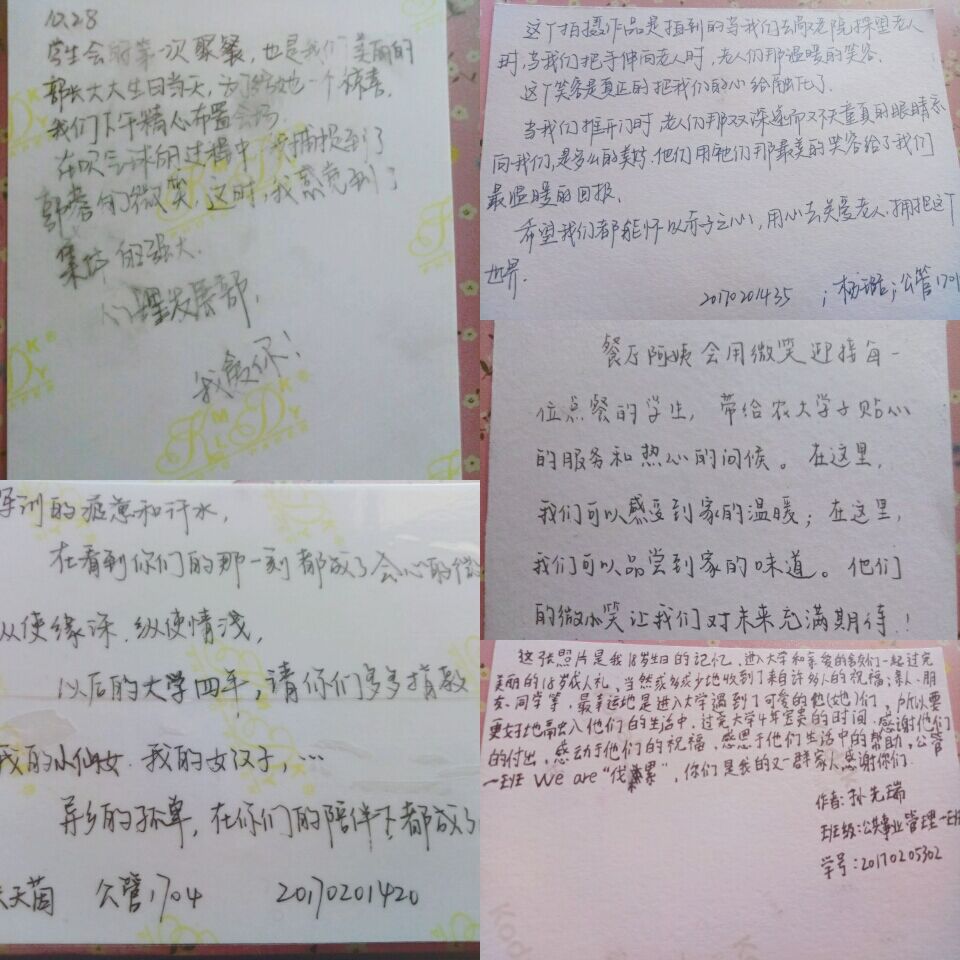 10.28
学生会的第一次聚餐，也是我们美丽的
部长大大生日当天，为了给她一个惊喜，
我们下午精心布置会场
在吹气球的过程中，我捕捉到了
郭蓉的微笑，这时，我感觉到了
集体的强大.
心理发展部，
我爱你！
这个拍摄作品是拍到的当我们去敬老院探望老人
时，当我们把手伸向老人时，老人们那温暖的笑容.
这个笑容是真正的把我们的心给融化了.
当我们推开门时，老人们那双深邃而又天童真的眼睛示
向我们，是多么的美好.他们用他们那最美的笑容给了我们
最温暖的回报.
希望我们都能怀以赤子之心，用心去关爱老人.拥抱这个
世界.
20170201435 ；杨璐；公管1704
餐厅阿姨会用微笑迎接每一
位点餐的学生，带给农大学子贴心
的服务和热心的问候。在这里，
我们可以感受到家的温暖；在这里，
我们可以品尝到家的味道。他们
的微小笑让我们对未来充满期待！
军训的疲惫和汗水，
在看到你们的那一刻都成了会心的微
从使缘深，纵使情浅，
以后的大学四年，请你们多多指教
我的小仙女，我的女汉子，…
异乡的孤单，在你们的陪伴下都成了
天茵 公管1704 20170201420
这张照片是我18岁生日的记忆，进入大学和亲爱的舍友们一起过完
美丽的18岁成人礼，当然或多或少地收到了来自许多人的祝福；亲人、朋
友、同学等，最幸运地是进入大学遇到了可爱的他(她)们，所以要
更好地融入他们的生活中，过完大学4年宝贵的时间.感谢他们
的付出，感动于他们的祝福，感恩于他们生活中的帮助，公管
一班 We are“伐累”，你们是我的又一群家人感谢你们.
作者：孙先瑞
班级：公共事业管理一班
学号：20170205302